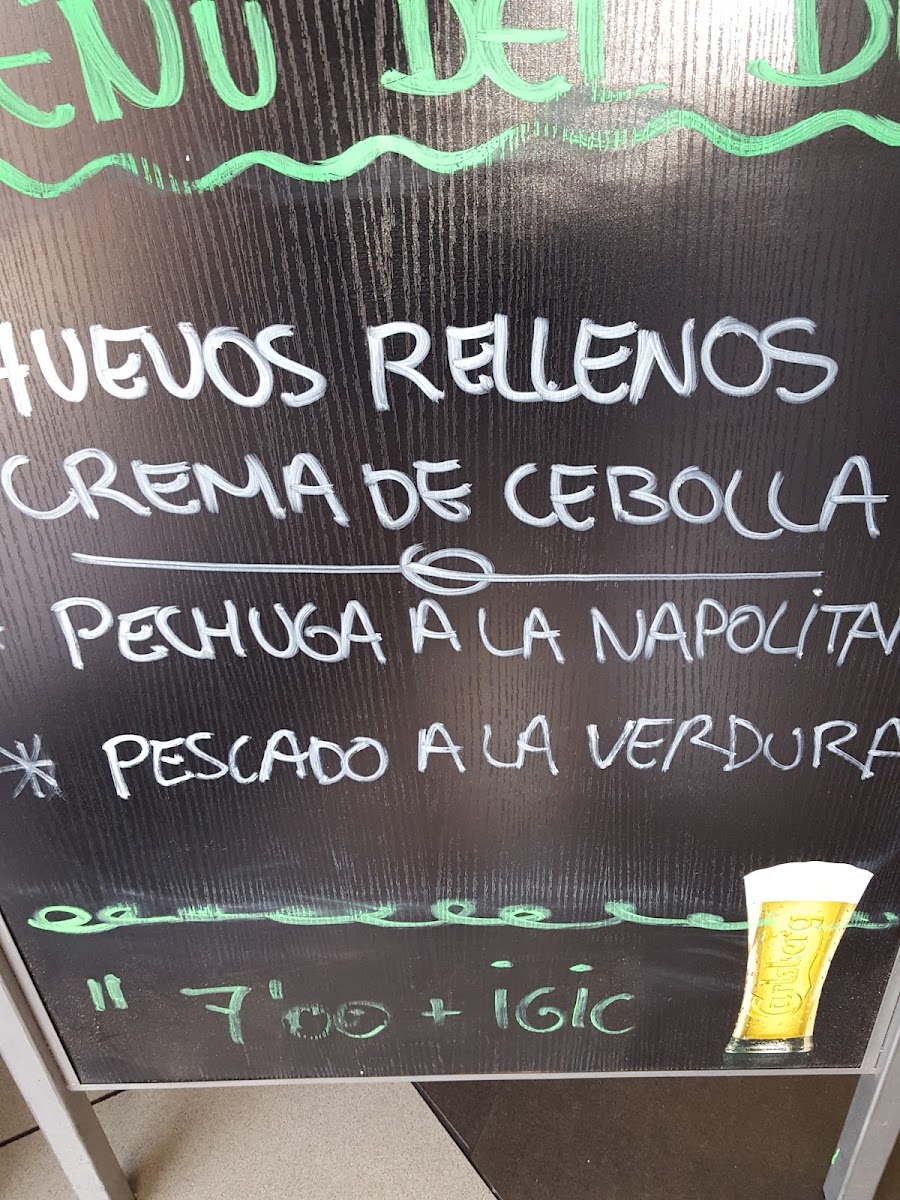 ENU DEL D
HUEVOS RELLENOS
CREMA DE CEBOLLA
PECHUGA A LA NAPOLITAN
* PESCADO A LA VERDURA
Carlsberg
" 7'00 + iGiC